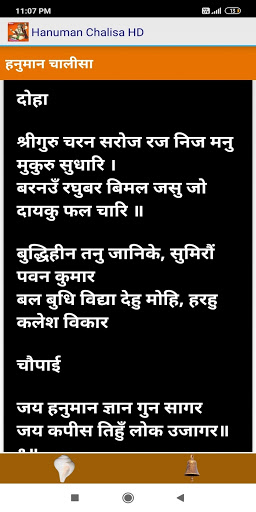 11:07 PM
13
Hanuman Chalisa HD
हनुमान चालीसा
दोहा
श्रीगुरु चरन सरोज रज निज मनु
मुकुरु सुधारि ।
बरनउँ रघुबर बिमल जसु जो
दायकु फल चारि ॥
बुद्धिहीन तनु जानिके, सुमिरौं
पवन कुमार
बल बुधि विद्या देहु मोहि, हरहु
कलेश विकार
चौपाई
जय हनुमान ज्ञान गुन सागर
जय कपीस तिहुँ लोक उजागर॥